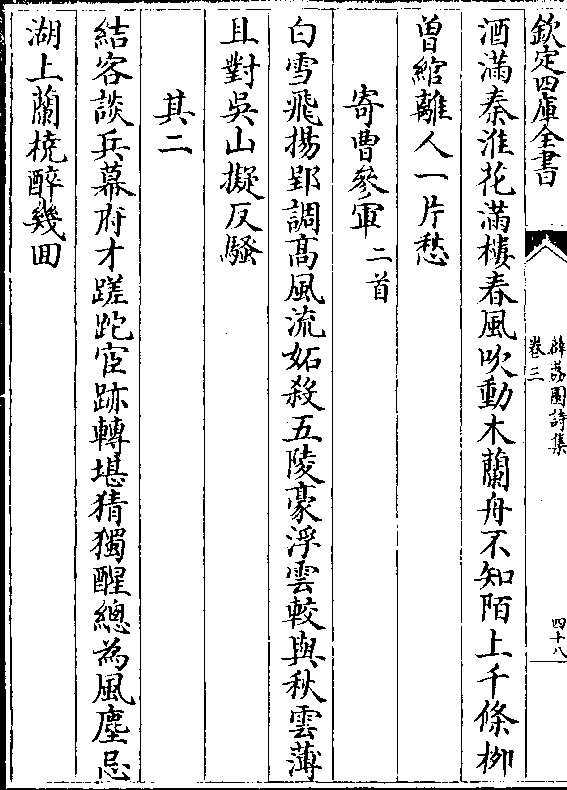 欽定四庫全書
薜荔園詩集
卷三
四十八
酒滿秦淮花滿樓春風吹動木蘭舟不知陌上千條柳
曽綰離人一片愁
寄曹參軍二首
白雪飛揚郢調髙風流妬殺五陵豪浮雲較與秋雲薄
且對吳山擬反騷
其二
結客談兵幕府才蹉跎宦跡轉堪猜獨醒總為風塵忌
湖上蘭橈醉幾回